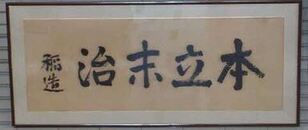 本立末治
稲造